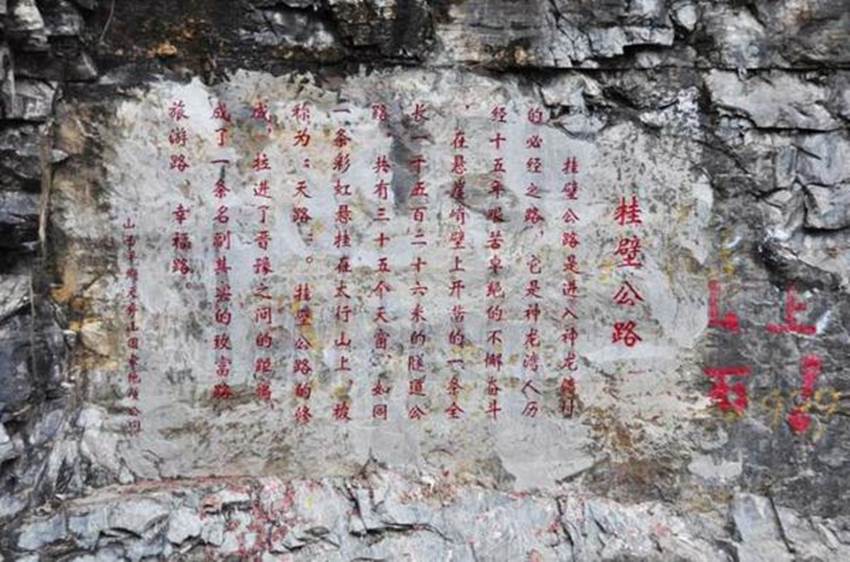 挂壁公路
挂壁公路是进入神龙湾村
的必经之路，它是神龙湾人历
经十五年艰苦卓绝的不懈奋斗
，在悬崖峭壁上开凿的一条全
长一千五百二十六米的隧道公
路，共有三十五个天窗，如同
一条彩虹悬挂在太行山上，被
称为“天路”。挂壁公路的修
成，拉进了晋豫之间的距离，
成了一条名副其实的致富路
旅游路、幸福路。
山西平顺天脊山国家地质公园
上
石
929